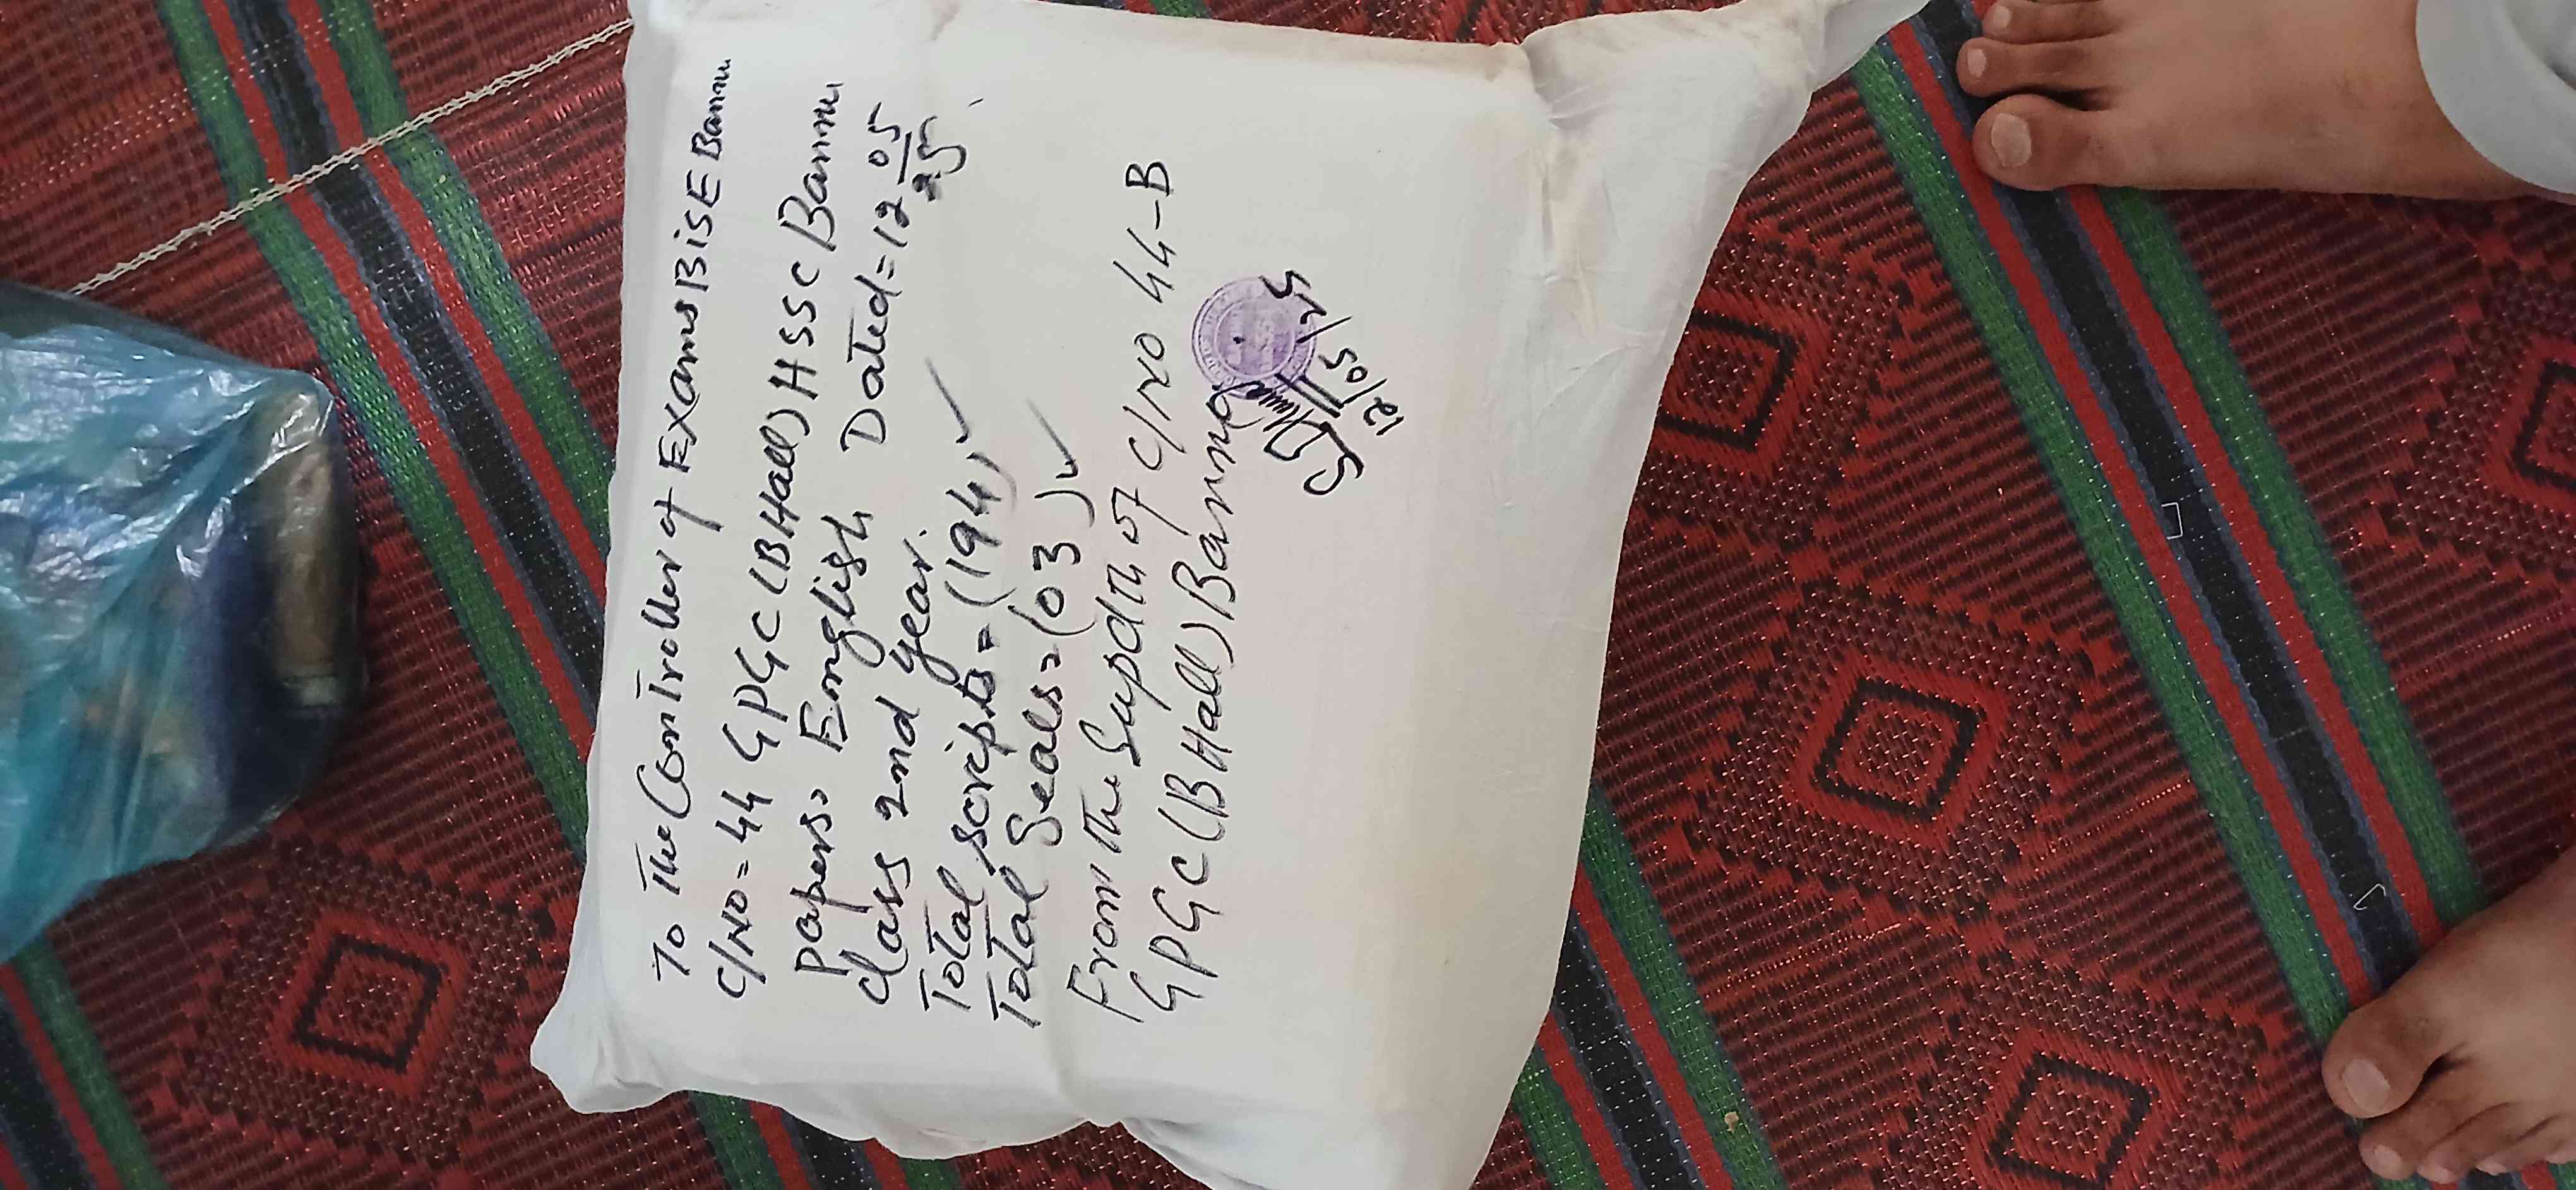 To The Controller of Exams BiSE Bannu
C/No = 44 GPGC (B Hall) HSSC Bannu
Paper = English Dated = 12 05/25
Class 2nd year.
Total scripts = (194) ✓
Total Seals = (03) ✓
From the Supdtt of C/No 44-B
GPGC (B Hall) Bannu
12/05/25